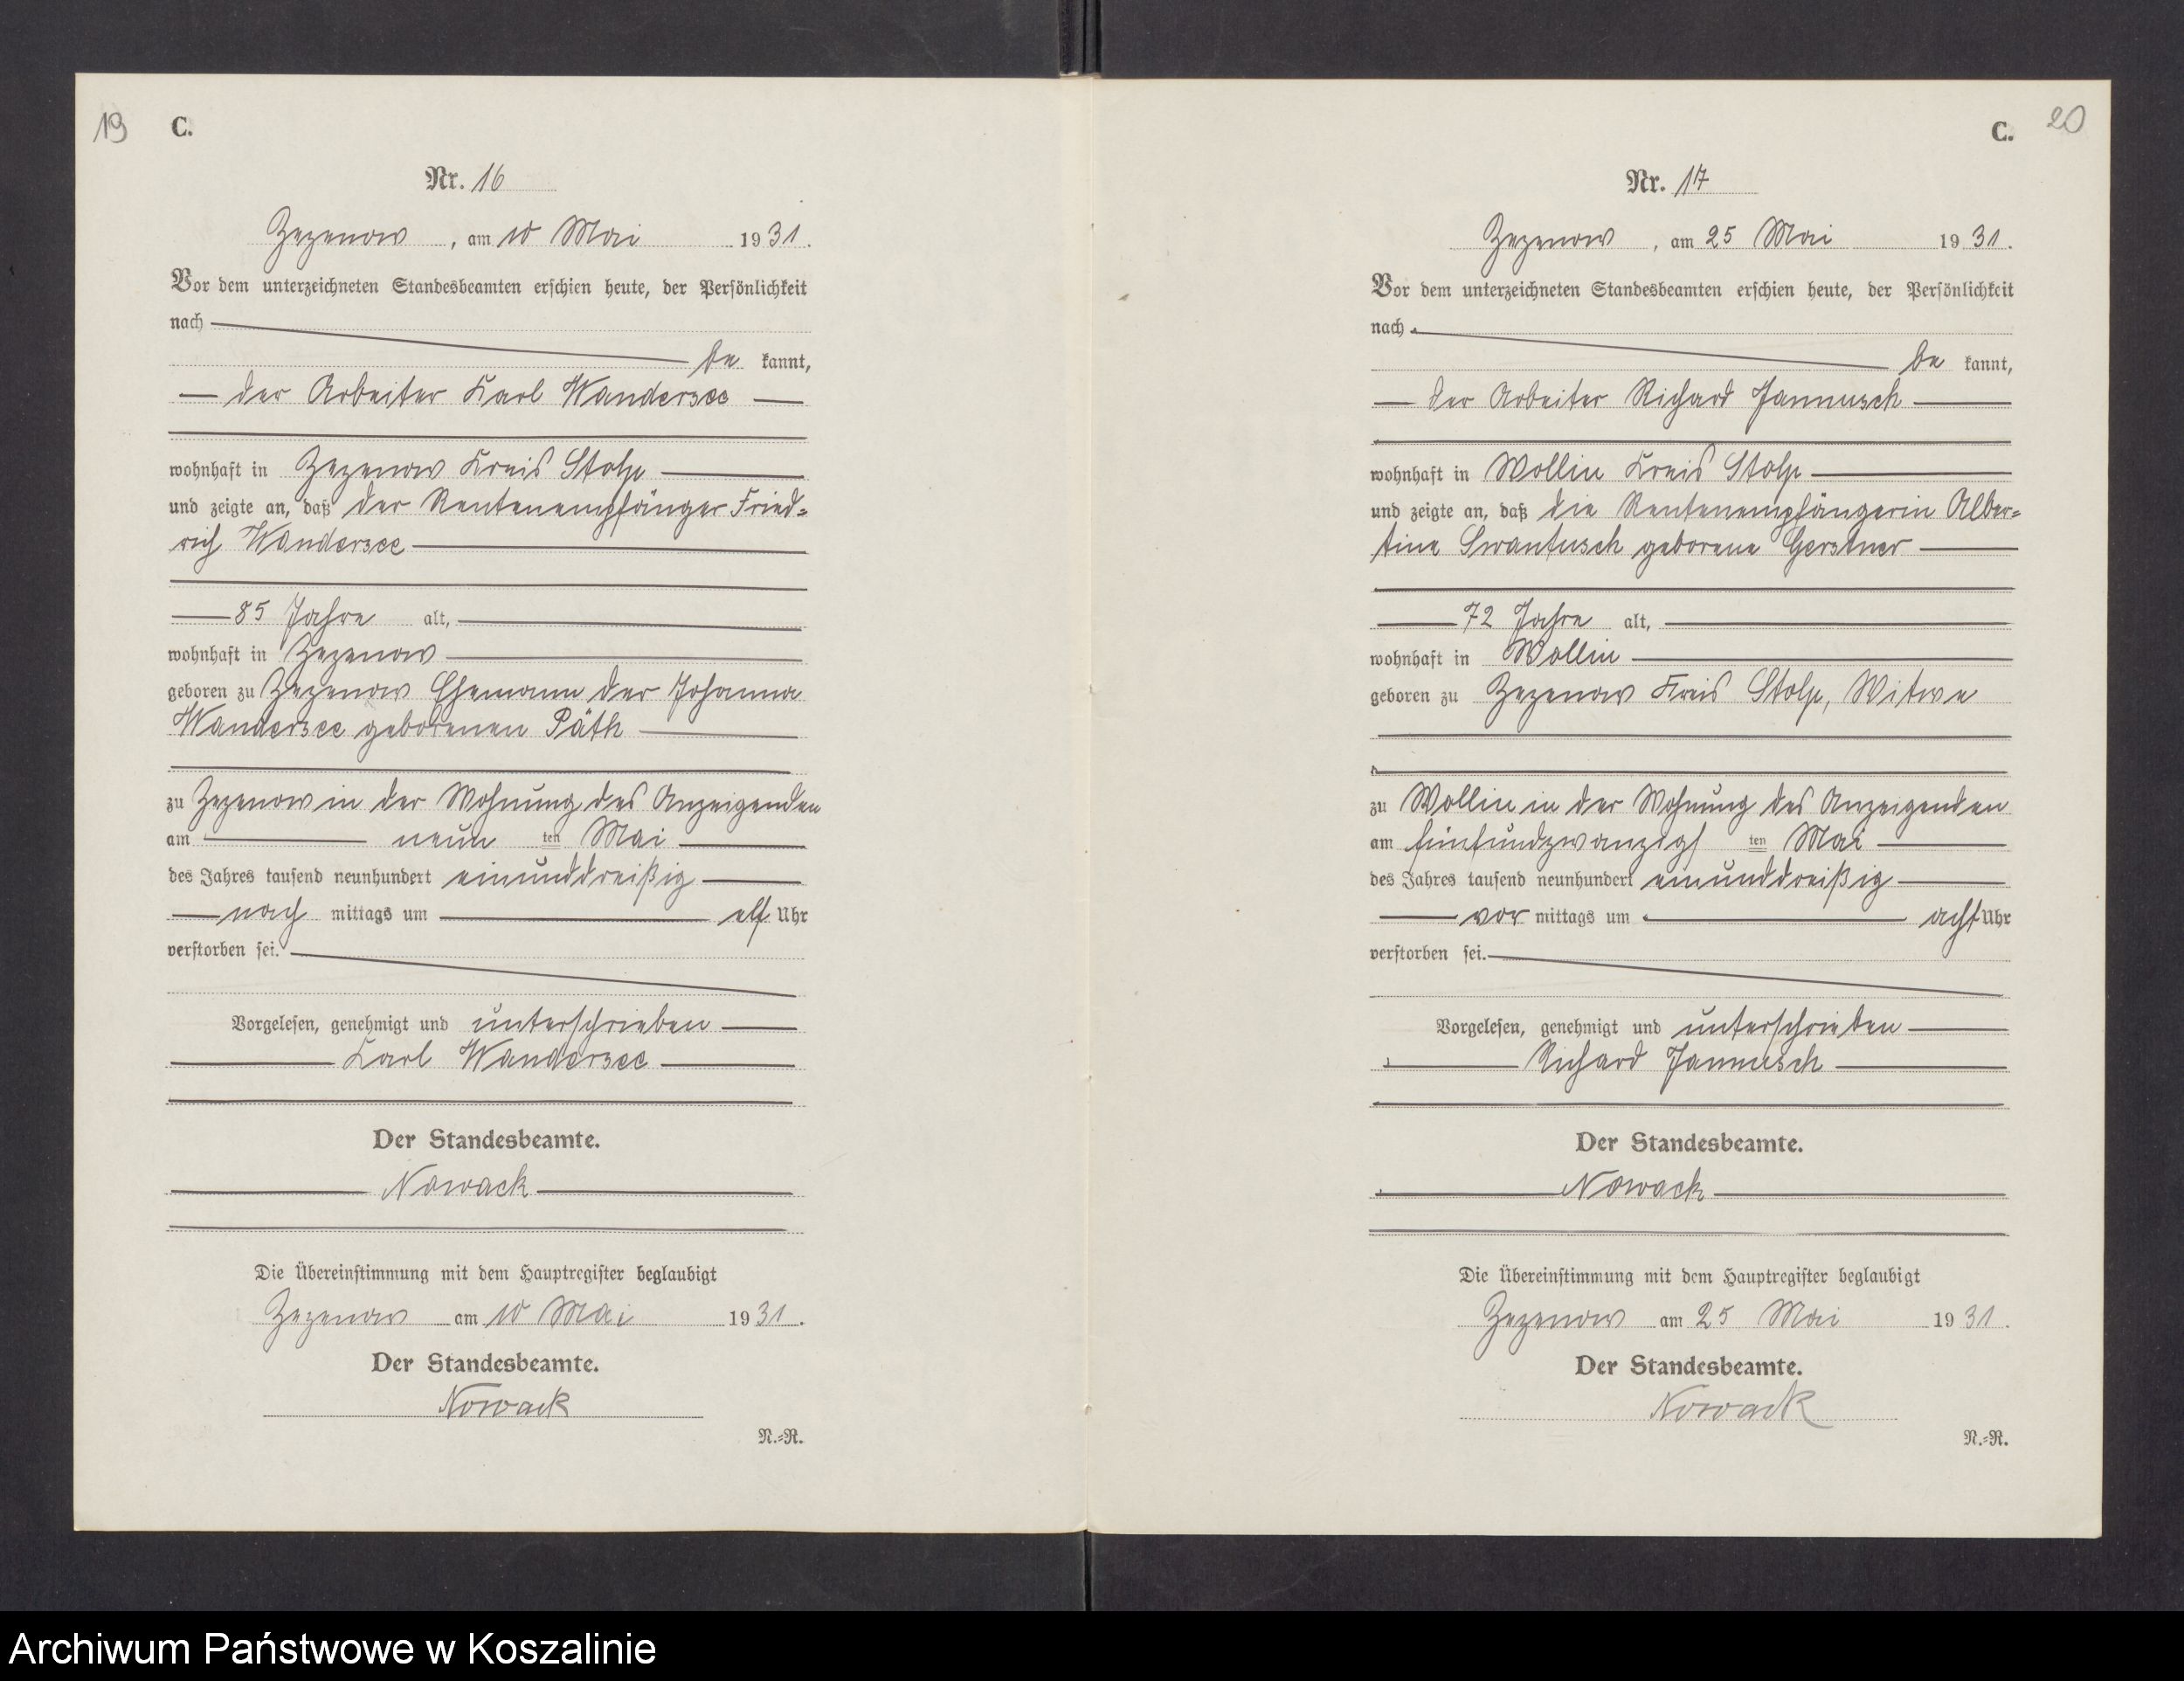 19 C.
Nr. 16
Zezenow, am 10 Mai 1931.
Vor dem unterzeichneten Standesbeamten erschien heute, der Persönlichkeit
nach
be kannt,
der Arbeiter Karl Wandersee
wohnhaft in Zezenow Kreis Stolp
und zeigte an, daß der Rentenempfänger Fried=
rich Wandersee
85 Jahre alt,
wohnhaft in Zezenow
geboren zu Zezenow Ehemann der Johanna
Wandersee geborenen Päth
zu Zezenow in der Wohnung des Anzeigenden
am neun ten Mai
des Jahres tausend neunhundert einunddreißig
nach mittags um elf Uhr
verstorben sei.
Vorgelesen, genehmigt und unterschrieben
Karl Wandersee
Der Standesbeamte.
Nowack
Die Übereinstimmung mit dem Hauptregister beglaubigt
Zezenow am 10 Mai 1931.
Der Standesbeamte.
Nowack
N.=R.
C. 20
Nr. 17
Zezenow, am 25 Mai 1931.
Vor dem unterzeichneten Standesbeamten erschien heute, der Persönlichkeit
nach
be kannt,
der Arbeiter Richard Jannusch
wohnhaft in Wollin Kreis Stolp
und zeigte an, daß die Rentenempfängerin Alber=
tine Swantusch geborene Gerstner
72 Jahre alt,
wohnhaft in Wollin
geboren zu Zezenow Kreis Stolp, Witwe
zu Wollin in der Wohnung des Anzeigenden
am fünfundzwanzigs ten Mai
des Jahres tausend neunhundert einunddreißig
vor mittags um acht Uhr
verstorben sei.
Vorgelesen, genehmigt und unterschrieben
Richard Jannusch
Der Standesbeamte.
Nowack
Die Übereinstimmung mit dem Hauptregister beglaubigt
Zezenow am 25 Mai 1931.
Der Standesbeamte.
Nowack
N.=R.
Archiwum Państwowe w Koszalinie